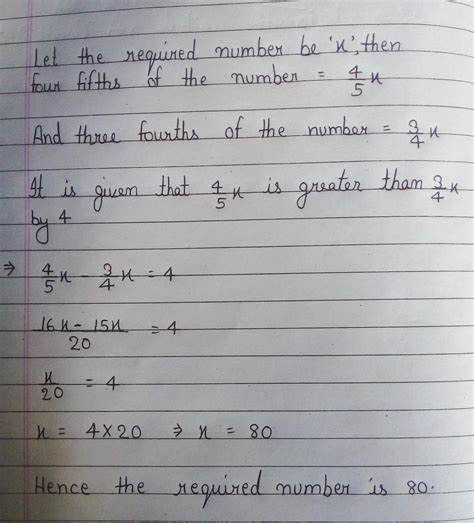 Let the required number be 'x', then
four fifths of the number = 4/5 x
And three fourths of the number = 3/4 x
It is given that 4/5 x is greater than 3/4 x
by 4
⇒ 4/5 x - 3/4 x = 4
16x - 15x / 20 = 4
x/20 = 4
x = 4×20 ⇒ x = 80
Hence the required number is 80.